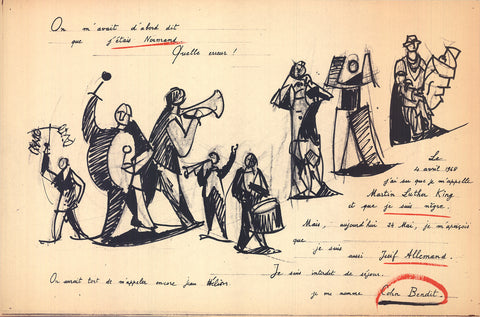 On m'avait d'abord dit
que j'étais Normand.
Quelle erreur !
Le
4 avril 1968
j'ai su que je m'appelle
Martin Luther King
et que je suis nègre.
Mais, aujourd'hui 24 Mai, je m'aperçois
que je suis
aussi Juif Allemand.
Je suis interdit de séjour.
On aurait tort de m'appeler encore Jean Hélion
je me nomme Cohn Bendit.